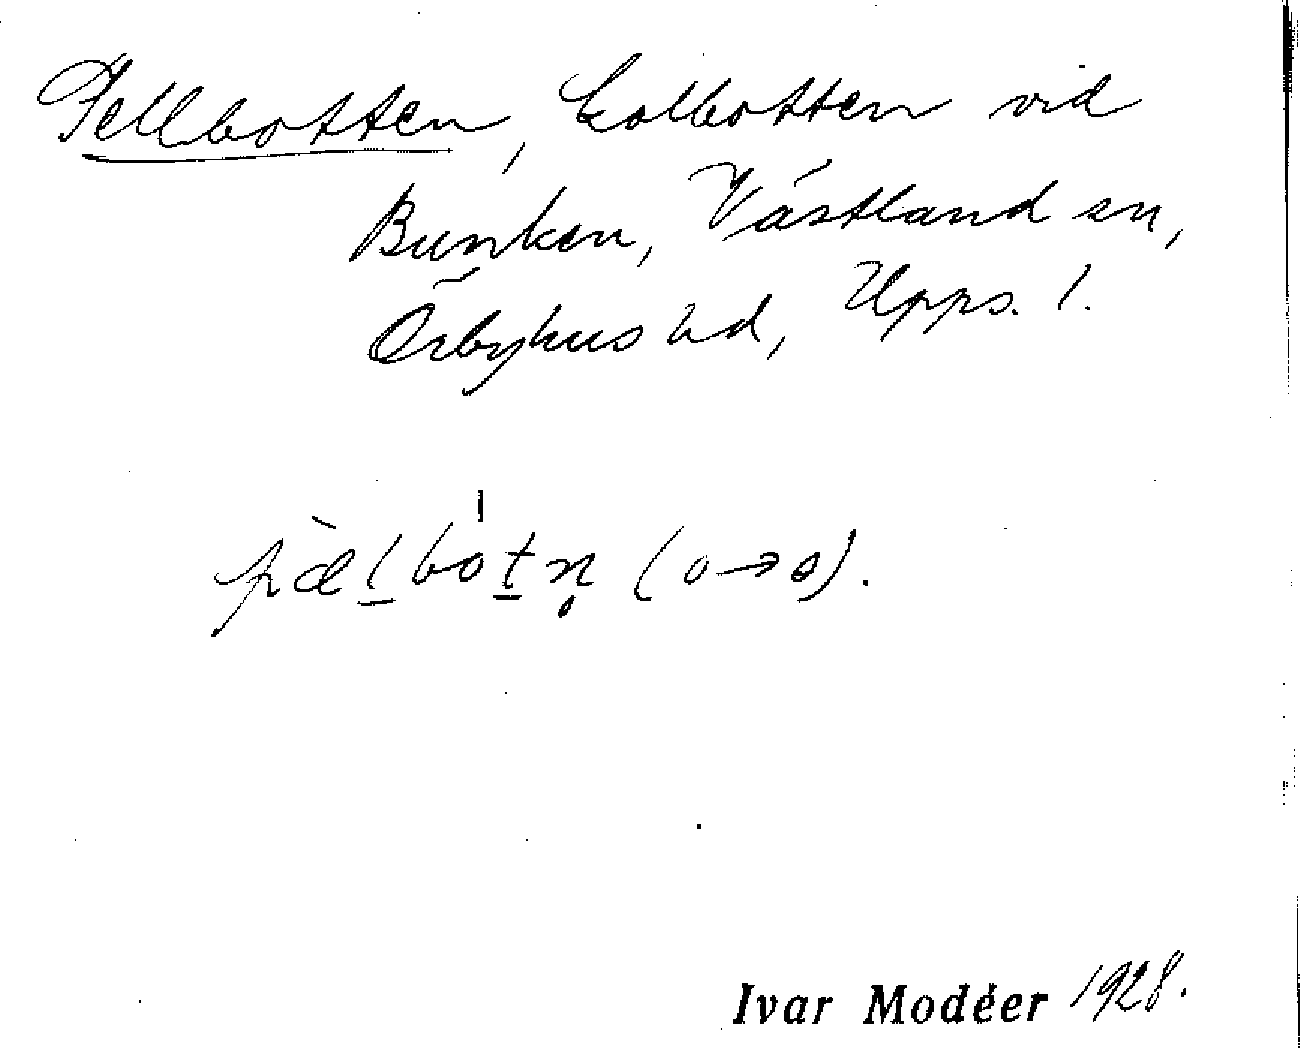 Pellbotten, kolbotten vid
Bunken, Västland sn,
Örbyhus hd, Upps. l.
pæ̀l̠bót̠n̥ (o→o).
Ivar Modéer 1928.